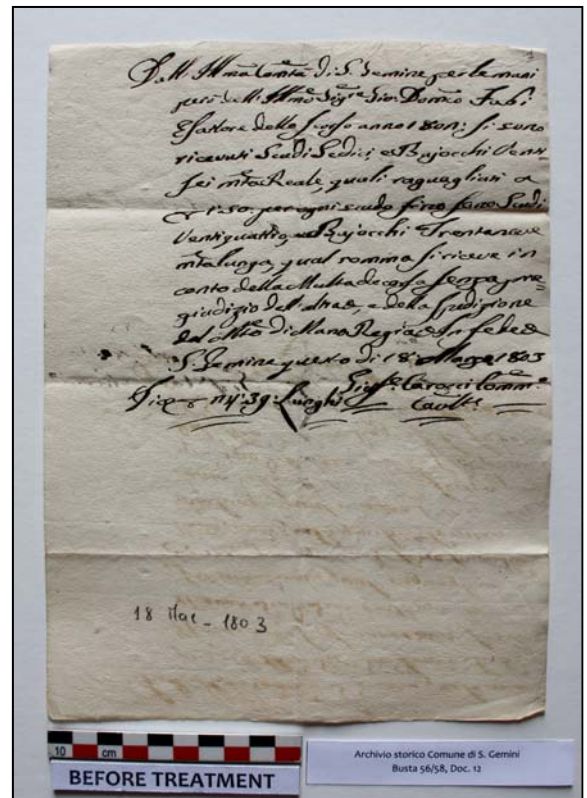 Dall' Ill͞ma Com͞tà di S. Gemine per le mani
però dell' Ill͞mo Sig͞re Gio: Dom͞co Fabi
Esattore dello scorso anno 1801; si sono
ricevuti Scudi Sedici, e Bajocchi Venti
sei m͞ta Reale, quali raguagliati a
1:50. per ogni scudo fino sono Scudi
Ventiquattro, e Bajocchi Trentanove
m͞ta lunga, qual somma si riceve in
conto della Multa decorsa senza pre-
giudizio dell' altra, e della spedizione
del di Mano Regia. In fede
S. Gemine questo di 18: Marzo 1803
Dico 24: 39: Lunghi Gius͞e Carocci Comm͞e
18 Mar - 1803
10 cm
BEFORE TREATMENT
Archivio storico Comune di S. Gemini
Busta 56/58, Doc. 12